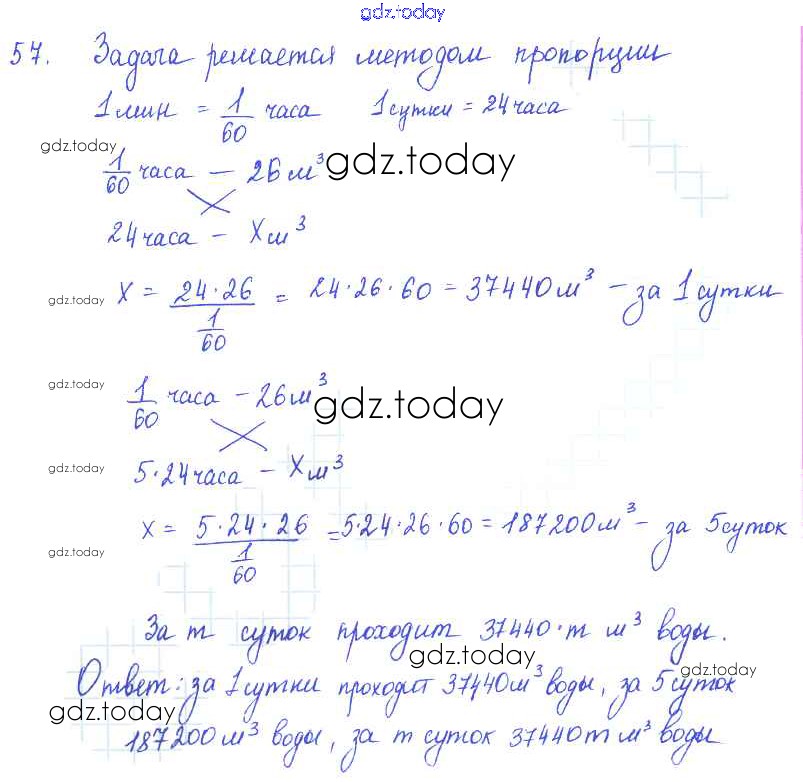 gdz.today
57. Задача решается методом пропорции
1 мин = 1/60 часа 1 сутки = 24 часа
gdz.today
1/60 часа – 26 м³ gdz.today
24 часа – X м³
gdz.today X = 24·26 / 1/60 = 24·26·60 = 37440 м³ – за 1 сутки
gdz.today
1/60 часа – 26 м³ gdz.today
gdz.today 5·24 часа – X м³
gdz.today X = 5·24·26 / 1/60 = 5·24·26·60 = 187200 м³ – за 5 суток
За m суток проходит 37440·m м³ воды.
gdz.today gdz.today
Ответ: за 1 сутки проходит 37440 м³ воды, за 5 суток
gdz.today
187200 м³ воды, за m суток 37440m м³ воды